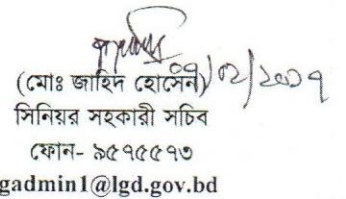 ০৭/০২/২০১৭
(মোঃ জাহিদ হোসেন)
সিনিয়র সহকারী সচিব
ফোন- ৯৫৭৫৫৭৩
gadmin1@lgd.gov.bd